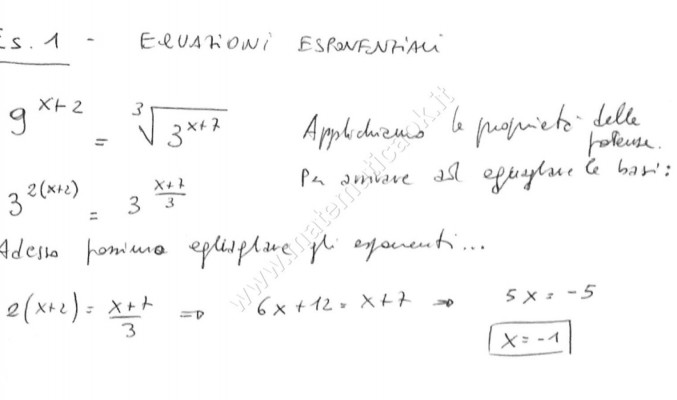 Es. 1 - EQUAZIONI ESPONENZIALI
9^(x+2) = ∛(3^(x+7)) Applichiamo le proprietà delle potenze.
3^(2(x+2)) = 3^((x+7)/3) Per arrivare ad eguagliare le basi:
Adesso possiamo eguagliare gli esponenti...
2(x+2) = (x+7)/3 ⇒ 6x+12 = x+7 ⇒ 5x = -5
x = -1
www.matematicaok.it